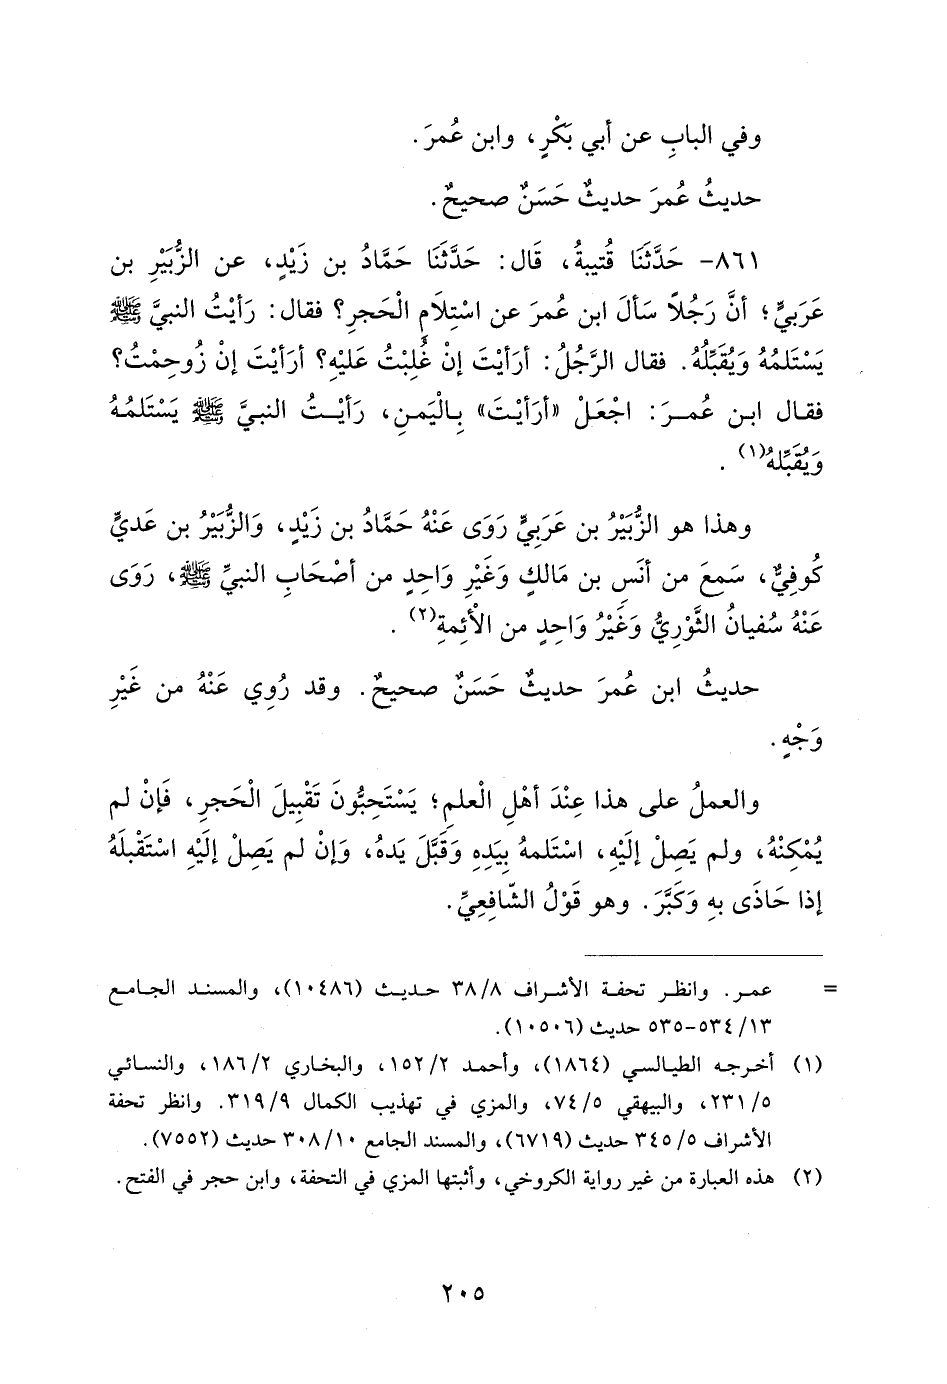 وفي البابِ عن أبي بَكْرٍ، وابن عُمرَ.
حديثُ عُمرَ حديثٌ حَسَنٌ صحيحٌ.
٨٦١- حَدَّثنَا قُتيبةُ، قَال: حَدَّثنَا حَمَّادُ بن زَيْدٍ، عن الزُّبَيْرِ بن
عَرَبيٍّ؛ أنَّ رَجُلاً سَألَ ابن عُمرَ عن اسْتِلَامِ الْحَجرِ؟ فقال: رَأيْتُ النبيَّ ﷺ
يَسْتَلمُهُ وَيُقَبِّلُهُ. فقال الرَّجُلُ: أرَأيْتَ إنْ غُلِبْتُ عَليْهِ؟ أرَأيْتَ إنْ زُوحِمْتُ؟
فقال ابن عُمرَ: اجْعَلْ «أرَأيْتَ» بِالْيَمنِ، رَأيْتُ النبيَّ ﷺ يَسْتَلمُهُ
وَيُقَبِّلهُ(١) .
وهذا هو الزُّبَيْرُ بن عَرَبيٍّ رَوَى عَنْهُ حَمَّادُ بن زَيْدٍ، وَالزُّبَيْرُ بن عَديٍّ
كُوفِيٌّ، سَمِعَ من أنَسِ بن مَالكٍ وَغَيْرِ وَاحِدٍ من أصْحَابِ النبيِّ ﷺ، رَوَى
عَنْهُ سُفيانُ الثَّوْرِيُّ وَغَيْرُ وَاحِدٍ من الْأئِمةِ(٢) .
حديثُ ابن عُمرَ حديثٌ حَسَنٌ صحيحٌ. وقد رُوِي عَنْهُ من غَيْرِ
وَجْهٍ.
والعملُ على هذا عِنْدَ أهْلِ الْعلمِ؛ يَسْتَحِبُّونَ تَقْبِيلَ الْحَجرِ، فَإنْ لم
يُمْكِنْهُ، ولم يَصِلْ إلَيْهِ، اسْتَلمهُ بِيَدِهِ وَقَبَّلَ يَدهُ، وَإنْ لم يَصِلْ إلَيْهِ اسْتَقْبلَهُ
إذا حَاذَى بهِ وَكَبَّرَ. وهو قَوْلُ الشّافِعِيِّ.
= عمر. وانظر تحفة الأشراف ٨/ ٣٨ حديث (١٠٤٨٦)، والمسند الجامع
١٣/ ٥٣٤-٥٣٥ حديث (١٠٥٠٦).
(١) أخرجه الطيالسي (١٨٦٤)، وأحمد ٢/ ١٥٢، والبخاري ٢/ ١٨٦، والنسائي
٥/ ٢٣١، والبيهقي ٥/ ٧٤، والمزي في تهذيب الكمال ٩/ ٣١٩. وانظر تحفة
الأشراف ٥/ ٣٤٥ حديث (٦٧١٩)، والمسند الجامع ١٠/ ٣٠٨ حديث (٧٥٥٢).
(٢) هذه العبارة من غير رواية الكروخي، وأثبتها المزي في التحفة، وابن حجر في الفتح.
٢٠٥